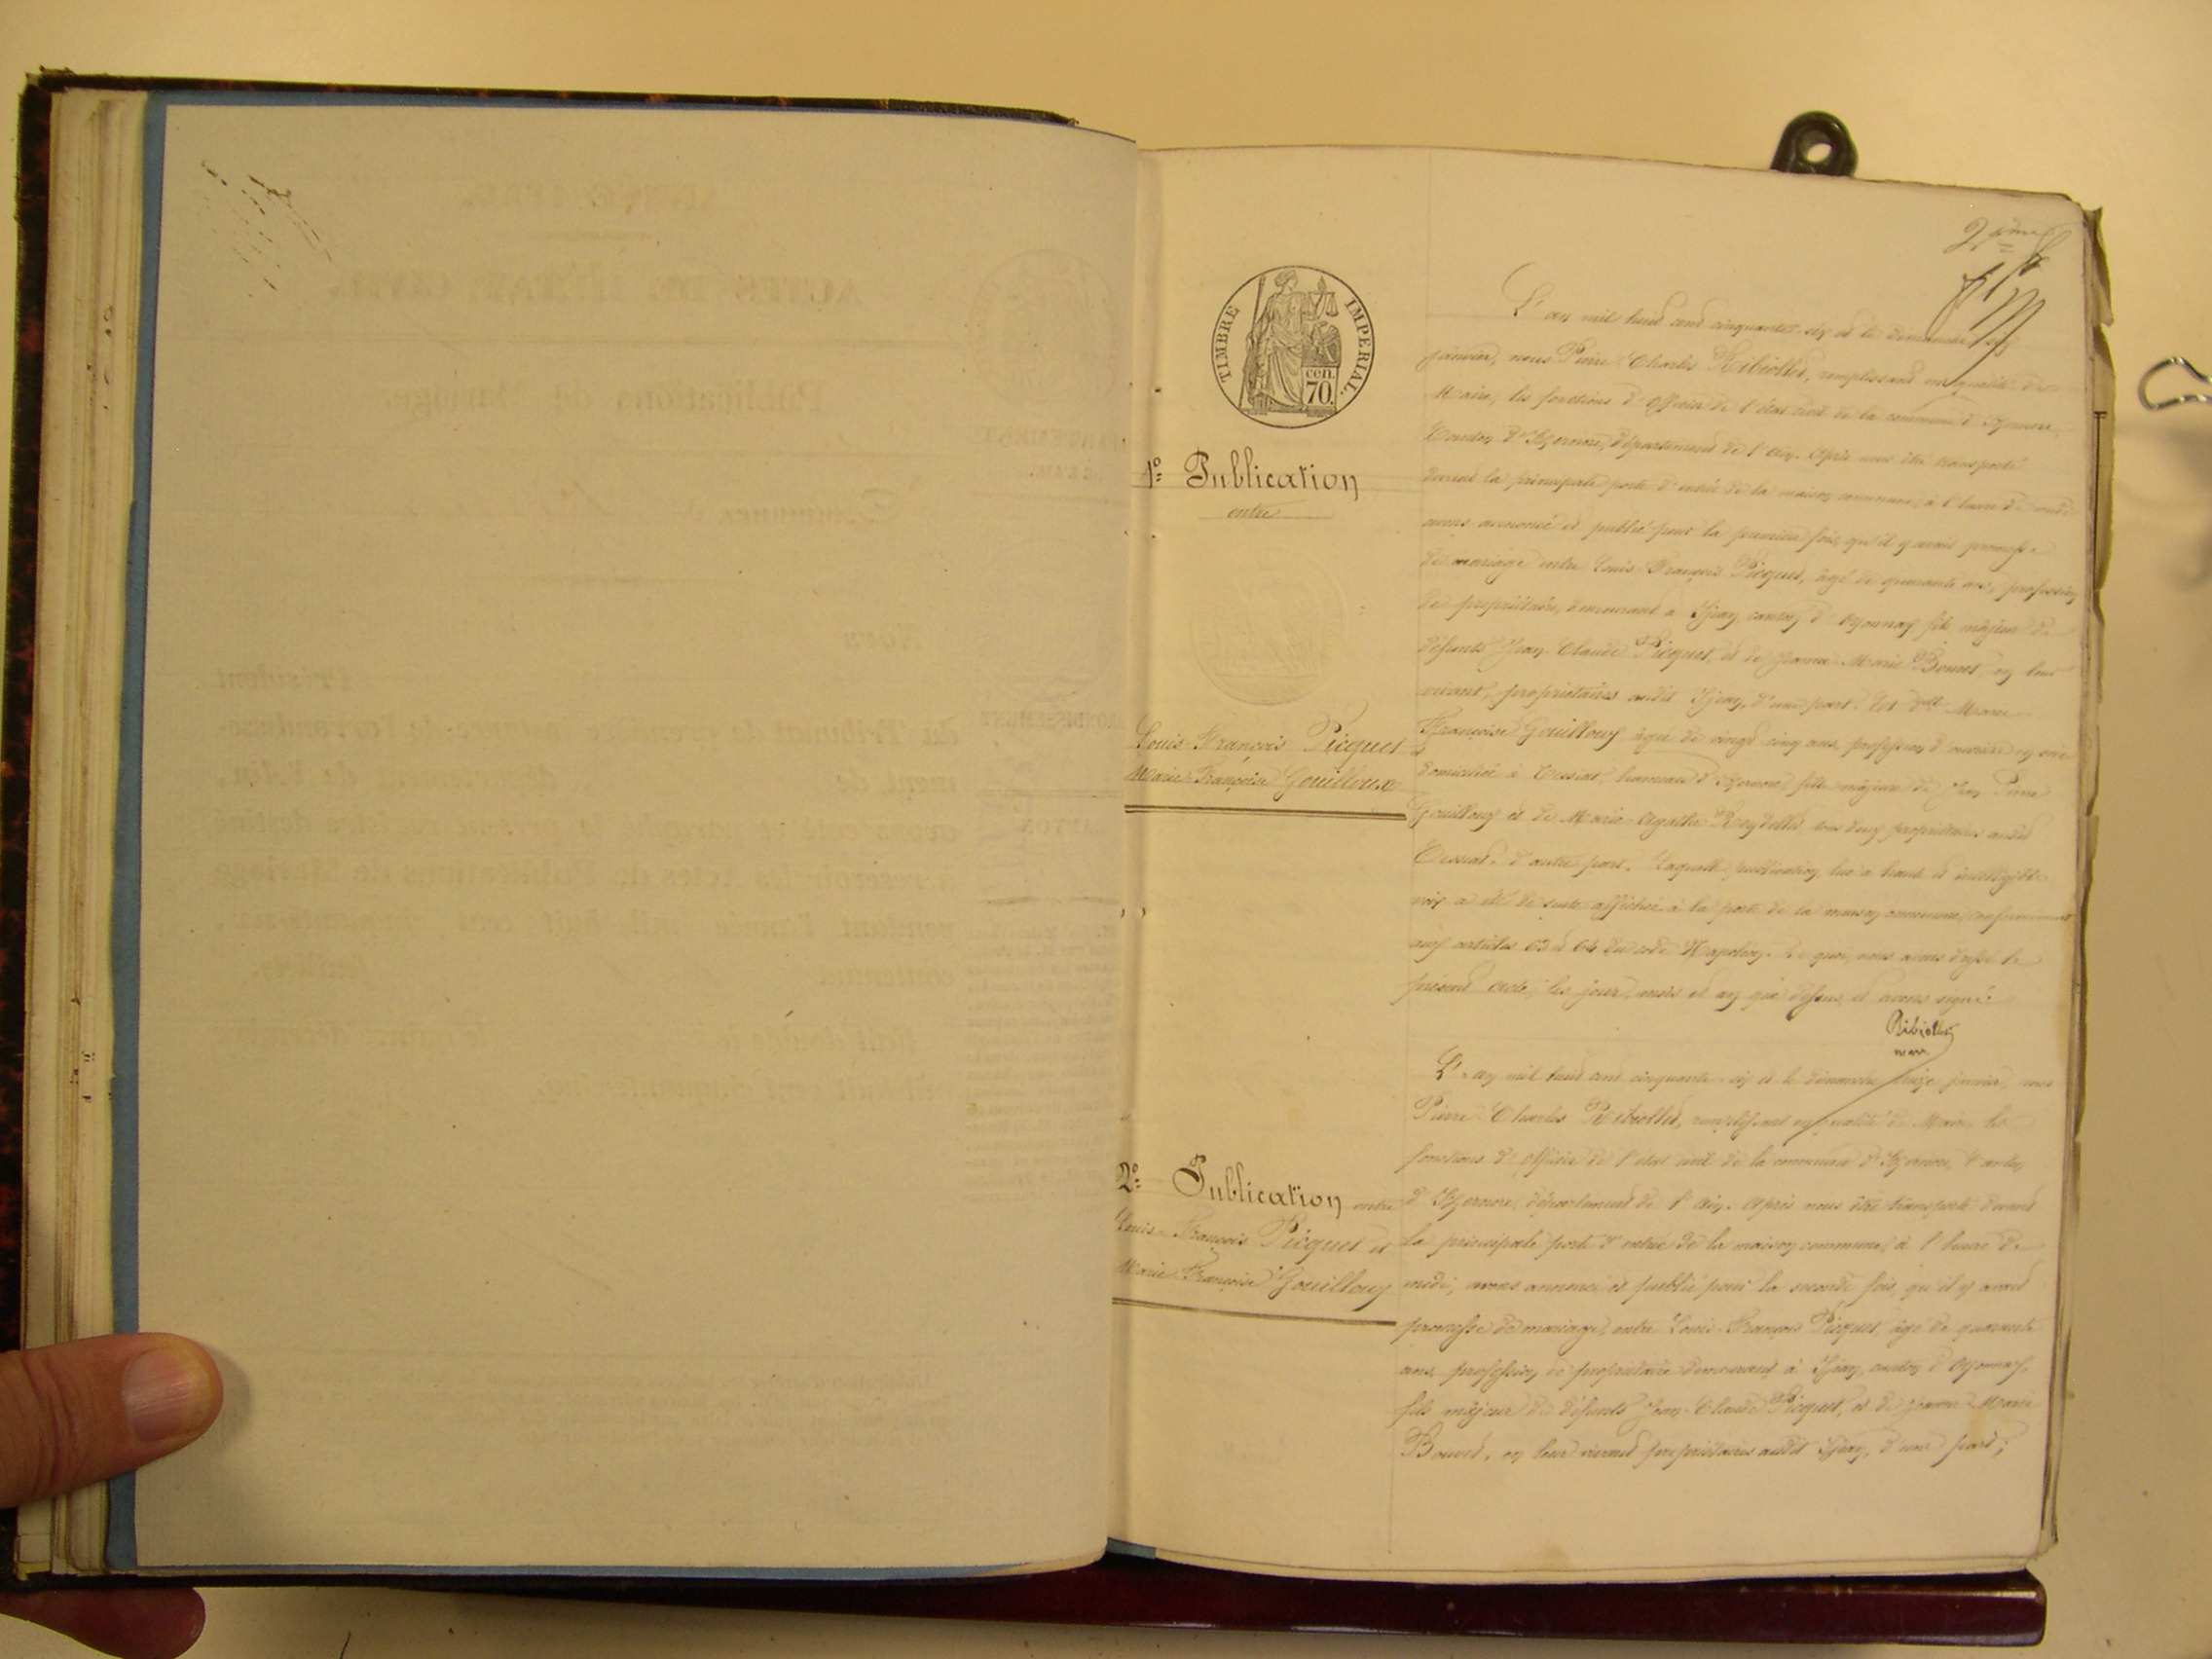 2eme
TIMBRE IMPERIAL.
cen.
70.
L'an mil huit cent cinquante-six et le dimanche six
janvier, nous Pierre Charles Ribiollet, remplissant en qualité de
Maire, les fonctions d'officier de l'état civil de la commune d'Izernore
Canton d'Izernore, département de l'Ain. Après nous être transporté
devant la principale porte d'entrée de la maison commune, à l'heure de midi
avons annoncé et publié pour la première fois, qu'il y avait promesse
de mariage entre Louis François Picquet, âgé de quarante ans, profession
de propriétaire, demeurant à Igeay canton d'Oyonnax fils majeur de
défunts Jean Claude Picquet, et de Jeanne Marie Bouvet en leur
vivant, propriétaires audit Igeay, d'une part. Et dlle Marie
Françoise Gouilloux âgée de vingt cinq ans, profession d'ouvrière en soie
domiciliée à Tessiat, hameau d'Izernore, fille majeure de Jean Pierre
Gouilloux et de Marie Agathe Reydellet tous deux propriétaires audit
Tessiat, d'autre part. Laquelle publication, lue à haute et intelligible
voix a été de suite affichée à la porte de la maison commune, conformément
aux articles 63 et 64 du code Napoléon. De quoi, nous avons dressé le
présent acte, les jour, mois et an que dessus, et avons signé.
Ribiollet
maire
1º Publication
entre
Louis François Picquet et
Marie Françoise Gouilloux
L'an mil huit cent cinquante-six et le dimanche treize janvier, nous
Pierre Charles Ribiollet, remplissant en qualité de Maire les
fonctions d'officier de l'état civil de la commune d'Izernore, Canton
d'Izernore, département de l'Ain. Après nous être transporté devant
la principale porte d'entrée de la maison commune, à l'heure de
midi, avons annoncé et publié pour la seconde fois, qu'il y avait
promesse de mariage, entre Louis François Picquet, âgé de quarante
ans, profession de propriétaire demeurant à Igeay, canton d'Oyonnax.
fils majeur de défunts Jean Claude Picquet, et de Jeanne Marie
Bouvet, en leur vivant propriétaires audit Igeay, d'une part ;
2º Publication entre
Louis François Picquet et
Marie Françoise Gouilloux